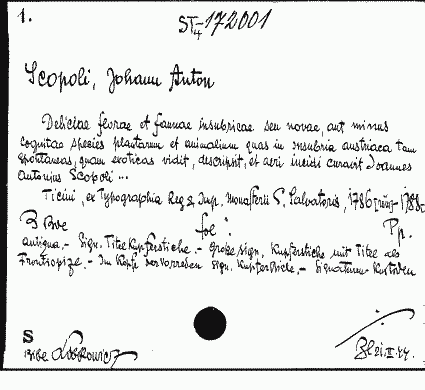 1.
ST4-172001
Scopoli, Johann Anton
Deliciae florae et faunae insubricae seu novae, aut minus
cognitae species plantarum et animalium quas in Insubria austriaca tam
spontaneas, quam exoticas vidit, descripsit, et aeri incidi curavit Joannes
Antonius Scopoli ...
Ticini, ex Typographia Reg & Imp. Monasterii S. Salvatoris, 1786-1788.-
3 Bde fol°. Pp.
antiqua.- Sign. Titelkupferstiche.- Große sign. Kupferstiche mit Titel als
Frontispize.- Im Kopf der Vorreden sign. Kupferstiche.- Signaturen Kustoden
S
Bibl. Lobkowicz
21.II.